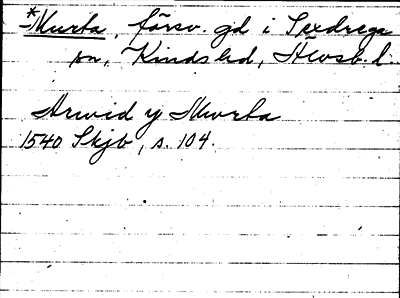 *Murta, försv. gd i Sexdrega
sn, Kinds hd, Älvsb. l.
Arwid y Murta
1540 Skjb, s. 104.